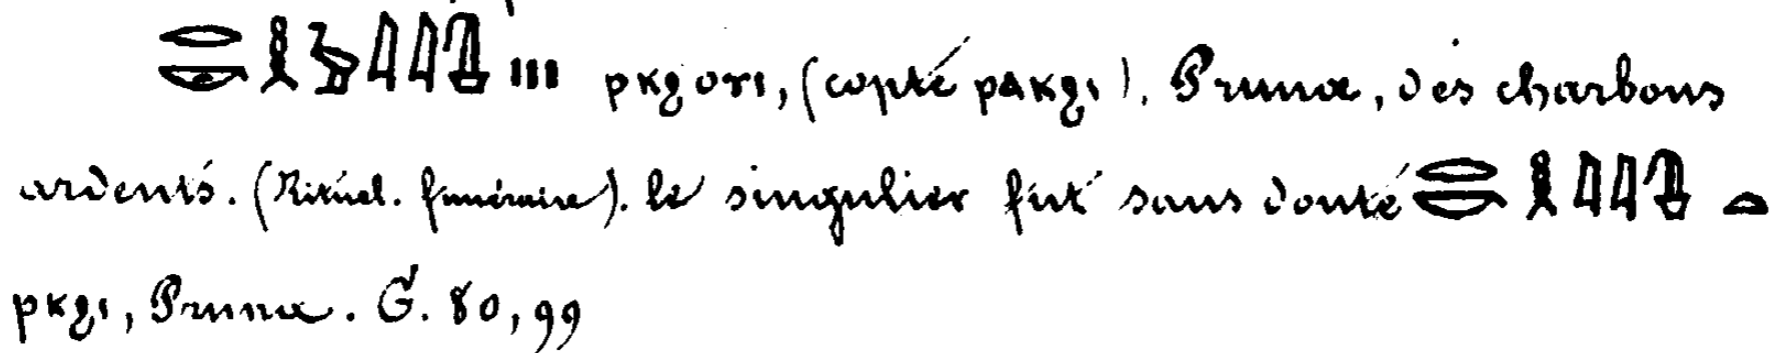 𓂋𓎡𓎛𓅱𓇋𓇋𓊮𓏥 ⲣⲕϩⲟⲩⲓ, (copte ⲣⲁⲕϩⲓ). Prunæ, des charbons
ardents. (Rituel. funéraire). le singulier fut sans doute 𓂋𓎡𓎛𓇋𓇋𓊮𓏏
ⲣⲕϩⲓ, Pruna. G. 80, 99